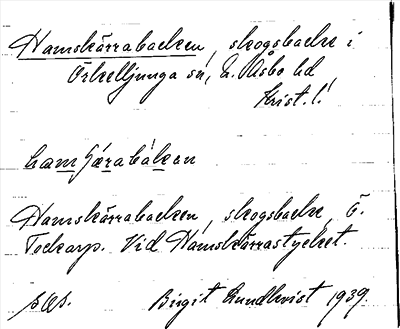 Hamskärrabacken, skogsbacke i
Örkelljunga sn, N. Åsbo hd
Krist. l.
hamʃæ̀rabákan
Hamskärrabacken, skogsbacke, Ö.
Tockarp. Vid Hamskärrastycket.
Birgit Lundkvist 1939.